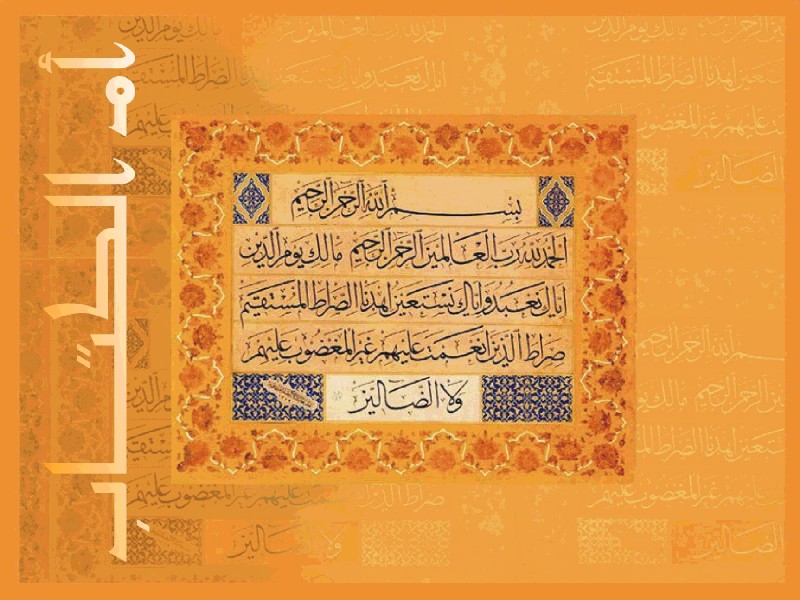 أم الكتاب
بسم الله الرحمن الرحيم
الحمد لله رب العالمين الرحمن الرحيم مالك يوم الدين
اياك نعبد واياك نستعين اهدنا الصراط المستقيم
صراط الذين انعمت عليهم غير المغضوب عليهم
ولا الضالين